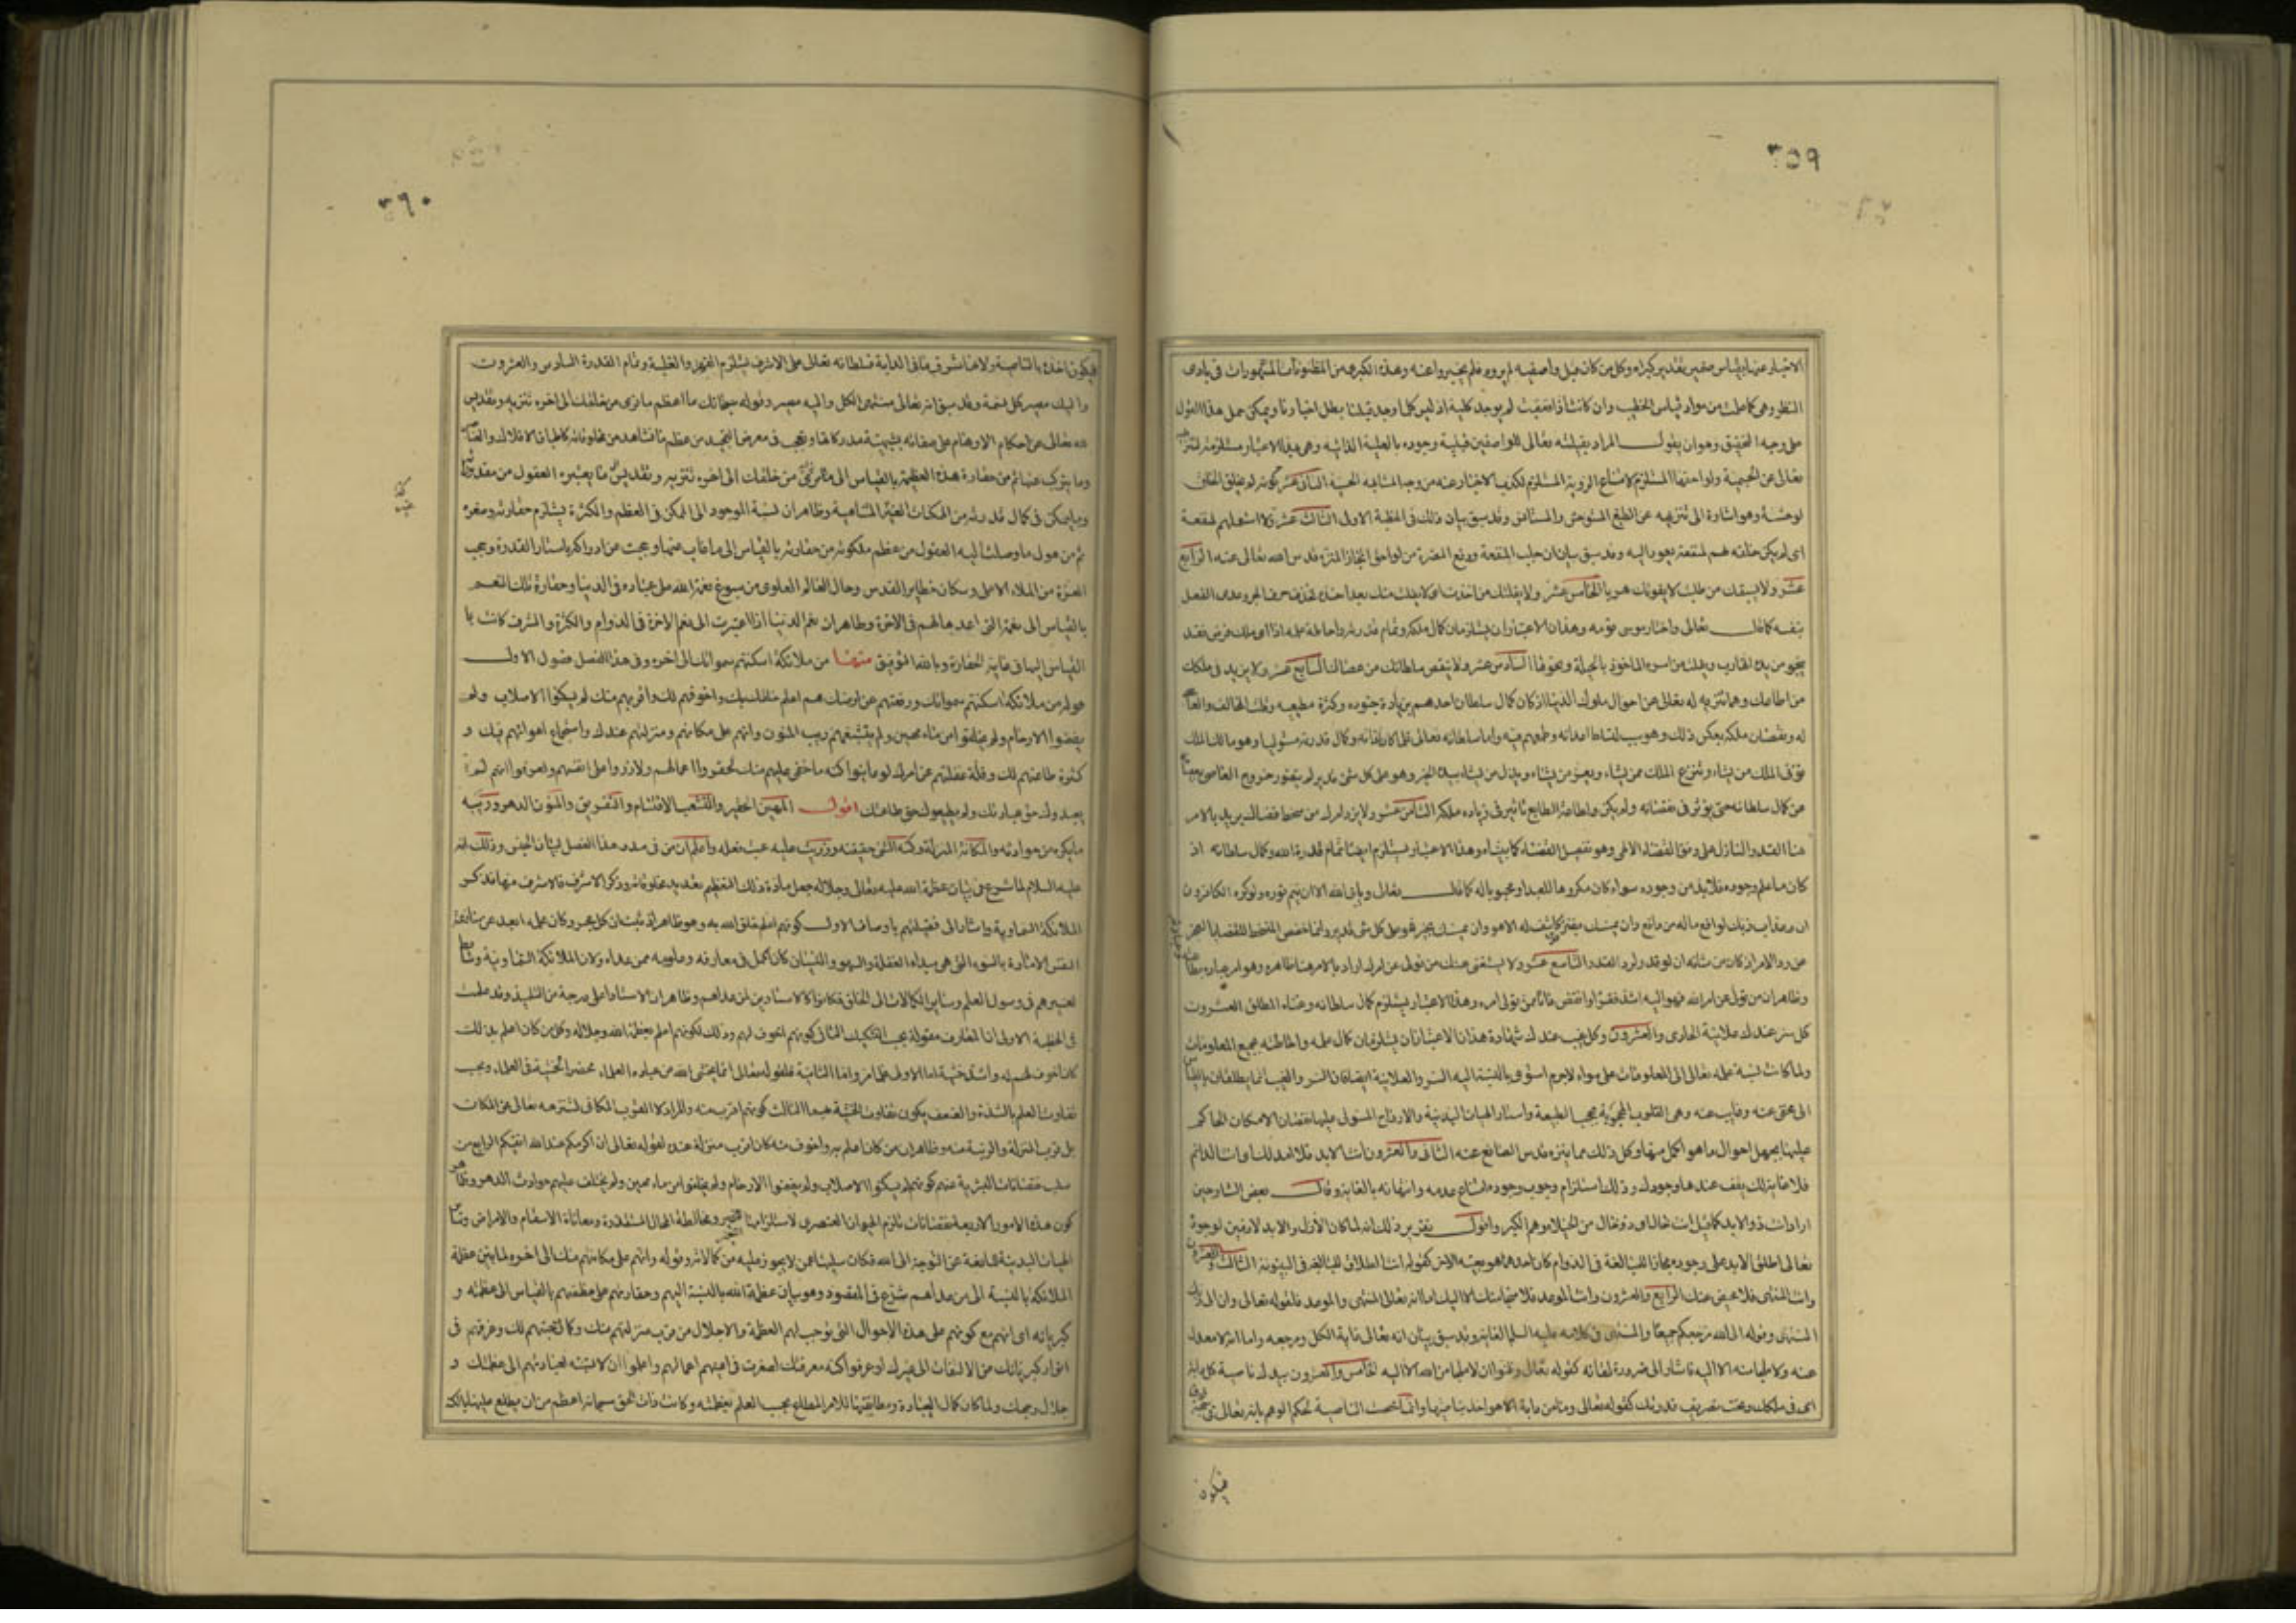 ٣٥٩
الاخبار عنها بقياس ضمير تقدير كبراه وكل من كان قبل واصفيه لم يروه فلم يخبروا عنه وهذه الكبرى من المظنونات المشهورات في بادى
النظر وهى كما علمت من مواد قياس الخطيب وان كانت اذا تعقبت لم يوجد كلية اذ ليس كلما وجد قبلنا بطل اخبارنا ويمكن حمل هذا القول
على وجه التحقيق وهو ان يقول المراد بقبليته تعالى للواصفين قبلية وجوده بالعلية الذاتية وهى بهذا الاعتبار مستلزمة لتنزهه
تعالى عن الجسمية ولواحقها المستلزم لامتناع الروية المستلزم لكذب الاخبار عنه من وجه المشابهة الحسية الثانى عشر كونه لم يخلق الخلق
لوحشة وهو اشارة الى تنزيهه عن الطبع المستوحش والمستانس وقد سبق بيان ذلك في الخطبة الاولى الثالث عشر ولا استعملهم لمنفعة
اى لم يكن خلقه لهم لمنفعة يعود اليه وقد سبق بيان ان جلب المنفعة ودفع المضرة من لواحق المزاج المنزه قدس الله تعالى عنه الرابع
عشر ولا يسبقك من طلبت لا يفوتك هربا الخامس عشر ولا يفلتك من اخذت اى لا يفلت منك بعد اخذه فحذف حرف الجر وعدى الفعل
بنفسه كما قال تعالى واختار موسى قومه وهذان الاعتباران يستلزمان كمال ملكه وتمام قدرته واحاطة علمه اذ اى ملك فرض فقد
ينجو من يده الهارب ويفلت من اسره الماخوذ بالحيلة ونحوها السادس عشر ولا ينقص سلطانك من عصاك السابع عشر ولا يزيد في ملكك
من اطاعك وهما تنزيه له تعالى عن احوال ملوك الدنيا اذ كان كمال سلطان احدهم بزيادة جنوده وكثرة مطيعيه وقلة المخالف والعاصى
له ونقصان ملكه بعكس ذلك وهو سبب لتسلط اعدائه وطمعهم فيه واما سلطانه تعالى فلما كان لذاته وكمال قدرته مستوليا وهو مالك الملك
يؤتى الملك من يشاء وينزع الملك ممن يشاء ويعز من يشاء ويذل من يشاء بيده الخير وهو على كل شئ قدير لم يتصور خروج العاصى بعصيانه
من كمال سلطانه حتى يؤثر في نقصانه ولم يكن لطاعة الطايع تاثير في زياده ملكه الثامن عشر ولا يرد امرك من سخط قضاءك يريد بالامر
هنا القدر النازل على وفق القضاء الالهى وهو تفصيل القضاء كما بيناه وهذا الاعتبار يستلزم ايضا تمام قدرة الله وكمال سلطانه اذ
كان ما علم وجوده فلا بد من وجوده سواء كان مكروها للعبد او محبوبا له كما قال تعالى ويابى الله الا ان يتم نوره ولو كره الكافرون
ان عذاب ربك لواقع ماله من دافع وان يمسسك بضر فلا كاشف له الا هو وان يمسسك بخير فهو على كل شئ قدير وانما خصص المتسخط للقضاء بالعجز
عن رد الامر اذ كان من شانه ان لو قدر لرد القدر التاسع عشر ولا يستغنى عنك من تولى عن امرك اراد بالامر هنا ظاهره وهو امر عباده بطاعته
وظاهر ان من تولى عن امر الله فهو اليه اشد فقرا وانقص ذاتا ممن تولى امره وهذا الاعتبار يستلزم كمال سلطانه وغناه المطلق العشرون
كل سر عندك علانية الحادى والعشرون وكل غيب عندك شهادة هذان الاعتباران يستلزمان كمال علمه واحاطته بجميع المعلومات
ولما كانت نسبة علمه تعالى الى المعلومات على سواء لاجرم استوى بالنسبة اليه السر والعلانية ايضا فان السر والغيب انما يطلقان بالقياس
الى مخفى عنه وغايب عنه وهى القلوب المحجوبة بحجب الطبيعة واستار الهيات البدنية والارواح المستولى عليها نقصان الامكان الحاكم
عليها بجهل احوال ما هو اكمل منها وكل ذلك مما ينزه قدس الصانع عنه الثانى والعشرون انت الابد فلا امد لك اى انت الدائم
فلا غاية لك يقف عندها وجودك وذلك استلزام وجوب وجوده امتناع عدمه وانتهائه بالغاية وقال بعض الشارحين
اراد انت ذو الابد كما قيل انت خيال اى ذو خيال من الخيلاء وهو الكبر واقول تقرير ذلك انه لما كان الازل والابد لازمين لوجوده
تعالى اطلق الابد على وجوده مجازا للمبالغة في الدوام كان احدهما هو بعينه الاخر كقوله انت الطلاق للمبالغة في البينونة الثالث والعشرون
وانت المنتهى فلا محيص عنك الرابع والعشرون وانت الموعد فلا منجا منك الا اليك اما انه تعالى المنتهى والموعد فلقوله تعالى وان الى ربك
المنتهى وقوله الى الله مرجعكم جميعا والمنتهى في كلامه عليه السلام الغاية وقد سبق بيان انه تعالى غاية الكل ومرجعه واما انه لا معدل
عنه ولا ملجا منه الا اليه فاشار الى ضرورة لقائه كقوله تعالى وظنوا ان لا ملجا من الله الا اليه الخامس والعشرون بيدك ناصية كل دابة
اى في ملكك وتحت تصريف قدرتك كقوله تعالى وما من دابة الا هو اخذ بناصيتها وانما خصت الناصية لحكم الوهم بانه تعالى في جهة فوق
فيكون
٣٦٠
فيكون اخذه بالناصية ولانها اشرف ما في الدابة فسلطانه تعالى على الاشرف يستلزم القهر والغلبة وتمام القدرة السادس والعشرون
واليك مصير كل نسمة وقد سبق انه تعالى منتهى الكل واليه مصيره وقوله سبحانك ما اعظم ما نرى من خلقك الى اخره تنزيه وتقديس
لله تعالى عن احكام الاوهام على صفاته بشبهية مدركاتها وتعجب في معرض التمجيد من عظم ما نشاهد من مخلوقاته كاطباق الافلاك والعناصر
وما يتركب عنها ثم من حقارة هذه العظمة بالقياس الى ما من خلقك الى اخره تنزيه وتقديس ما يعتبره العقول من مقدوراته
وما يمكن في كمال قدرته من الممكنات الغير المتناهية وظاهر ان نسبة الموجود الى الممكن في العظم والكثرة يستلزم حقارته وصغره
ثم من هول ما وصلت اليه العقول من عظم ملكوته ثم من حقارته بالقياس الى ما غاب عنها وحجبت عن ادراكه باستار القدرة وحجب
العزة من الملاء الاعلى وسكان حظاير القدس وحال العالم العلوى ثم من سبوغ نعم الله على عباده في الدنيا وحقارة تلك النعم
بالقياس الى نعمته التى اعدها لهم في الاخرة وظاهر ان نعم الدنيا اذا اعتبرت الى نعم الاخرة في الدوام والكثرة والشرف كانت با
القياس اليها في غاية الحقارة وبالله التوفيق منها من ملائكة اسكنتهم سمواتك الى اخره وفي هذا الفصل فصول الاول
قوله من ملائكة اسكنتهم سمواتك ورفعتهم عن ارضك هم اعلم خلقك بك واخوفهم لك واقربهم منك لم يسكنوا الاصلاب ولم
يضمنوا الارحام ولم يخلقوا من ماء مهين ولم يتشعبهم ريب المنون وانهم على مكانهم ومنزلتهم عندك واستجماع اهوائهم فيك و
كثرة طاعتهم لك وقلة غفلتهم عن امرك لو عاينوا كنه ما خفى عليهم منك لحقروا اعمالهم ولازروا على انفسهم ولعرفوا انهم لم
يعبدوك حق عبادتك ولم يطيعوك حق طاعتك اقول المهين الحقير والتشعب الاقتسام والتفريق والمنون الدهر وريبه
ما يكره من حوادثه والمكانة المنزلة وكنه الشئ حقيقته وزريت عليه عبت فعله واعلم ان من في صدر هذا الفصل لبيان الجنس وذلك انه
عليه السلام لما شرع في بيان عظمة الله عليه تعالى وجلاله جعل مادة ذلك التعظيم تعديد مخلوقاته وذكر الاشرف فالاشرف منها فذكر
الملائكة السماوية واشار الى فضيلتهم باوصاف الاول كونهم اعلم خلق الله به وهو ظاهر اذ ثبت ان كل مجرد كان علمه ابعد عن منازعة
النفس الامارة بالسوء التى هى مبداء الغفلة والسهو والنسيان كان اكمل في معارفه وعلومه ممن عداه ولان الملائكة السماوية وسايط
لغيرهم في وصول العلم وساير الكمالات الى الخلق فكانوا كالاستادين لمن عداهم وظاهر ان الاستاد اعلى درجة من التلميذ وقد علمت
في الخطبة الاولى ان المعارف مقولة بحسب التشكيك الثانى كونهم اخوف لهم وذلك لكونهم اعلم بعظمة الله وجلاله وكل من كان اعلم بذلك
كان اخوف لهم له واشد خشية اما الاولى فلما مر واما الثانية فلقوله تعالى انما يخشى الله من عباده العلماء فحصر الخشية في العلماء وبحسب
تفاوت العلم بالشدة والضعف يكون تفاوت الخشية بهما الثالث كونهم اقرب منه والمراد لا القرب المكانى لتنزهه تعالى عن المكان
بل قرب المنزلة والرتبة منه وظاهر ان من كان اعلم به واخوف منه كان اقرب منزلة عنده لقوله تعالى ان اكرمكم عند الله اتقيكم الرابع من
سلب نقصانات البشرية عنهم كونهم لم يسكنوا الاصلاب ولم يضمنوا الارحام ولم يخلقوا من ماء مهين ولم يختلف عليهم حوادث الدهر وظاهر
كون هذه الامور الاربعة نقصانات تلزم الحيوان العنصرى لاستلزامها التغير ومخالطة المحال المستقذرة ومعاناة الاسقام والامراض وساير
الهيات البدنية المانعة عن التوجه الى الله فكان سلبها عمن لا يجوز عليه من كمالاته وقوله وانهم على مكانتهم منك الى اخره لما بين عظمة
الملائكة بالنسبة الى من عداهم شرع في المقصود وهو بيان عظمة الله بالنسبة اليهم وحقارتهم على عظمتهم بالقياس الى عظمته و
كبريائه اى انهم مع كونهم على هذه الاحوال التى توجب لهم العظمة والاجلال من قرب منزلتهم منك وكمال محبتهم لك وغرقهم في
انوار كبريائك عن الالتفات الى غيرك لو عرفوا كنه معرفتك لصغرت في اعينهم اعمالهم واعلموا ان لا نسبة لعبادتهم الى عظمتك و
جلال وجهك ولما كان كمال العبادة ومطابقتها للامر المطلع بحسب العلم بعظمته وكانت ذات الحق سبحانه اعظم من ان يطلع عليها بالكنه